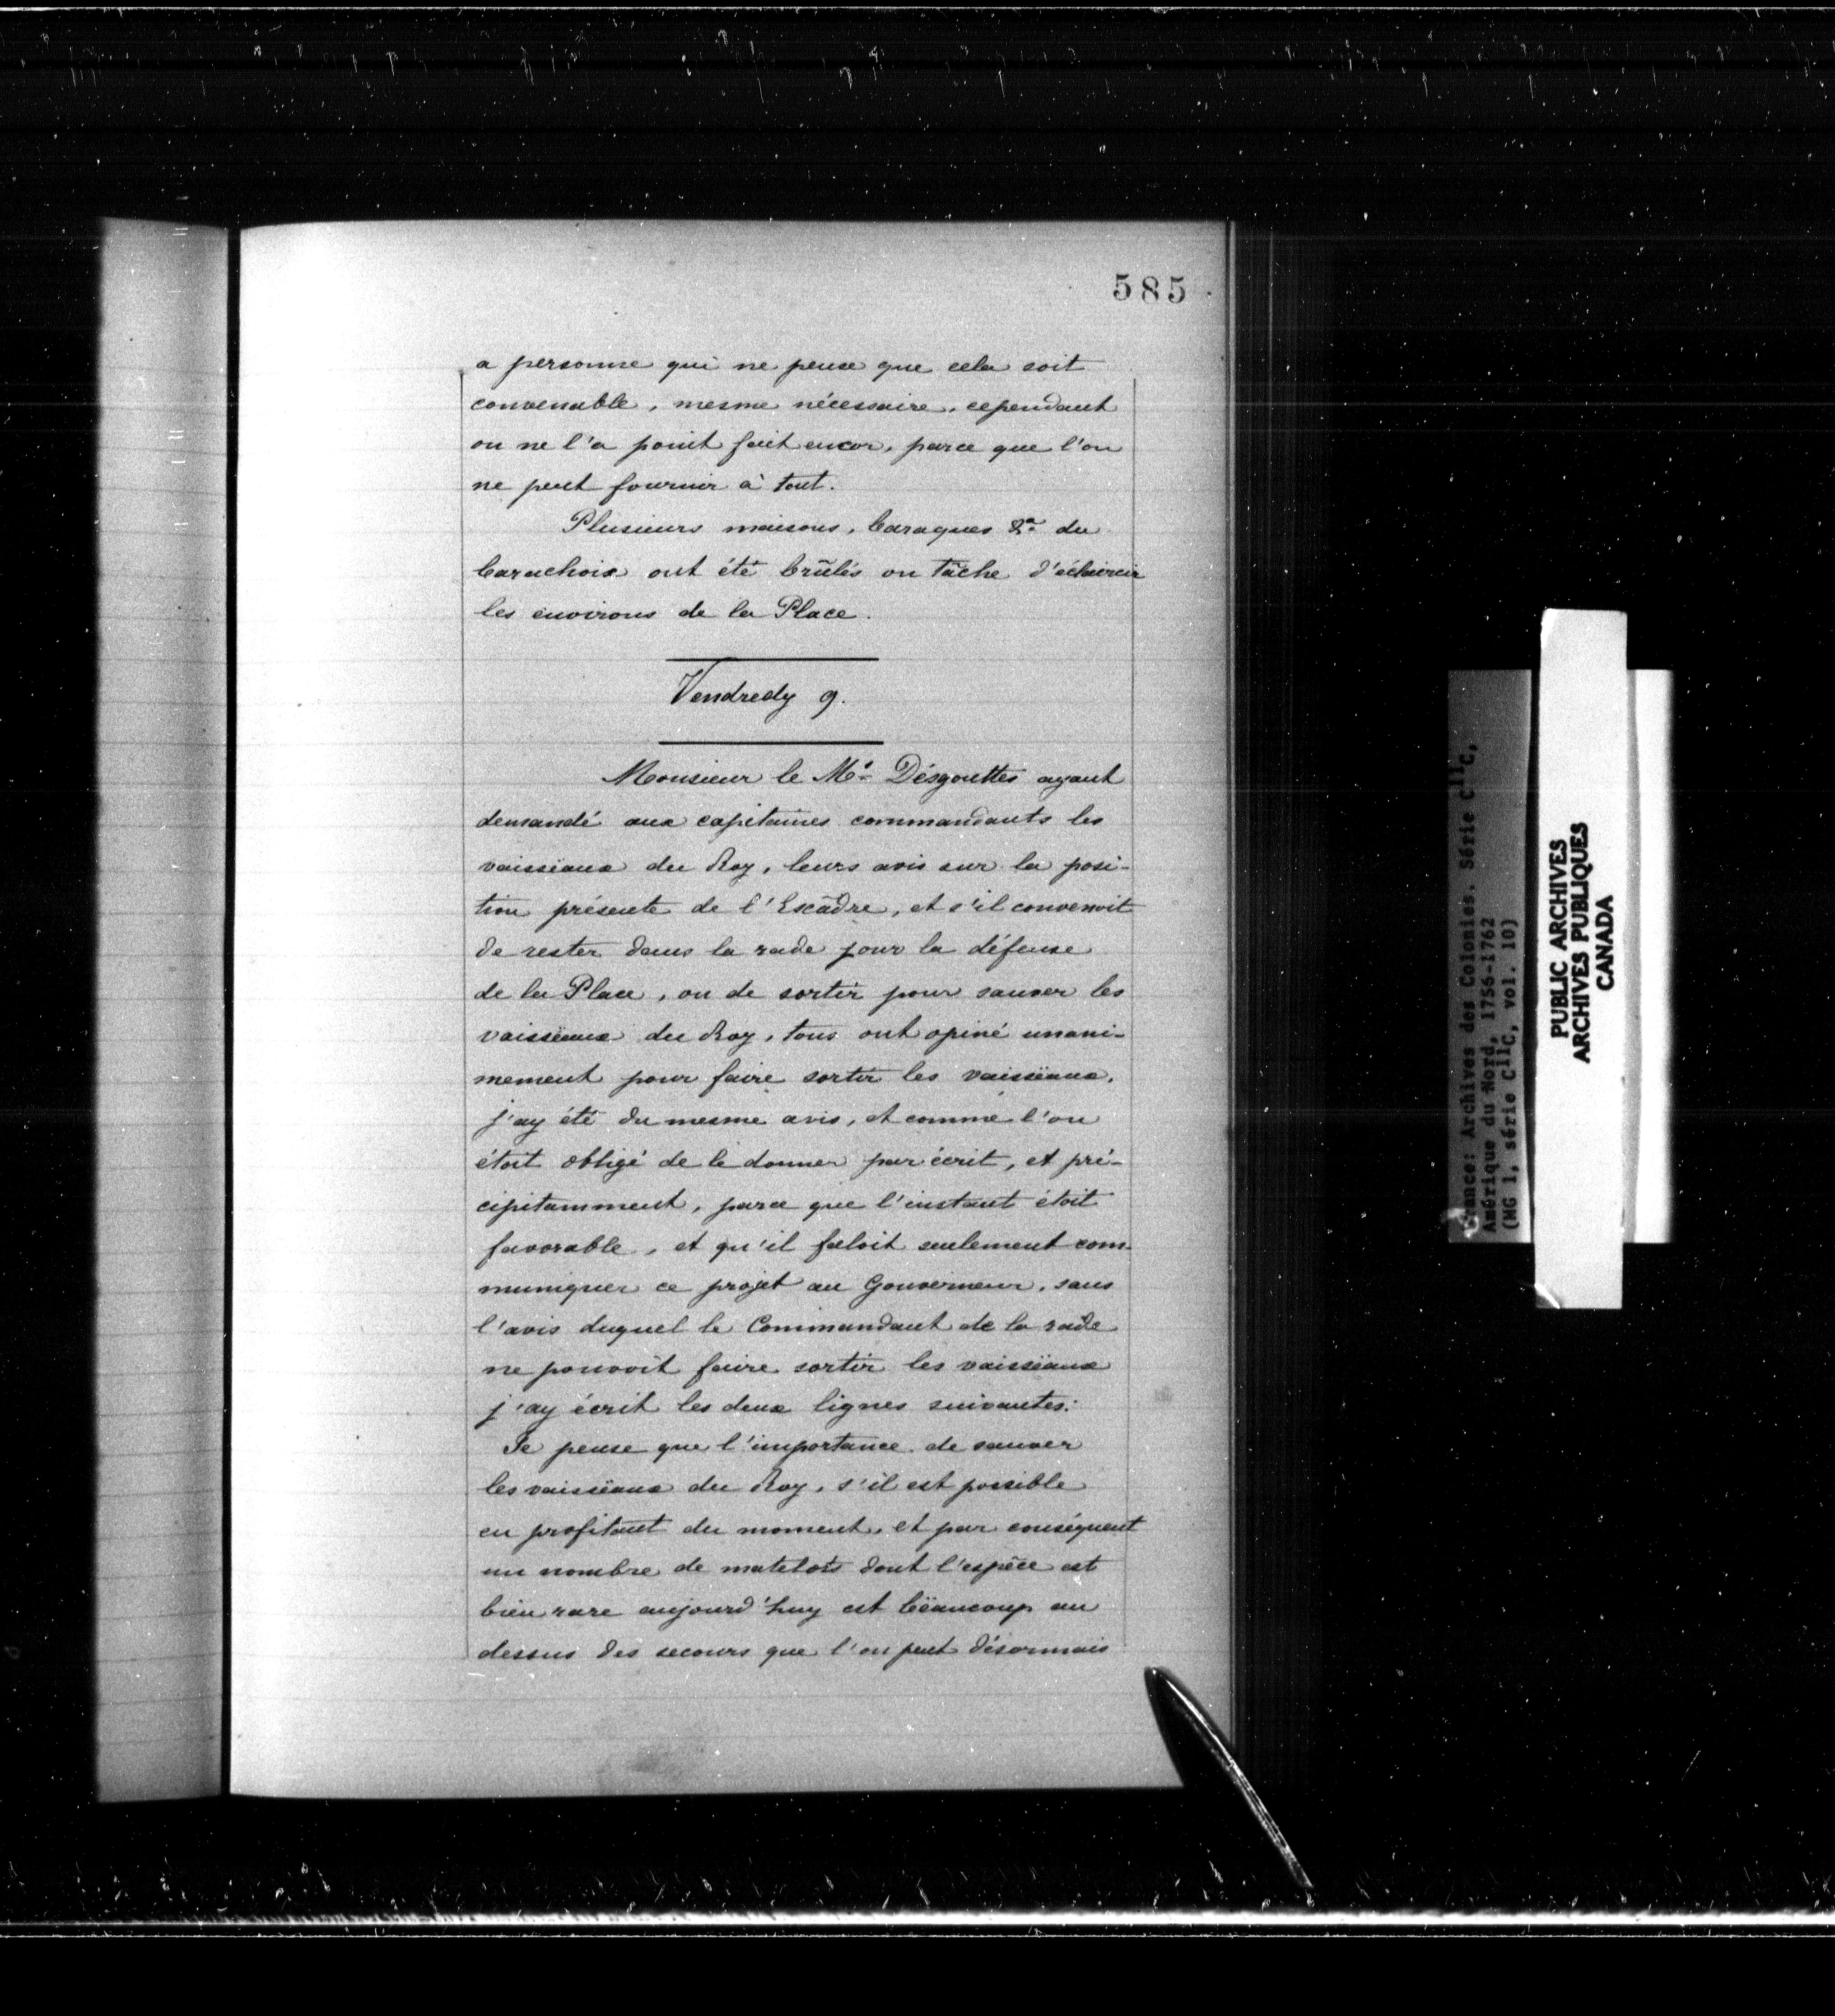 585
a personne qui ne pense que cela soit
convenable, mesme nécessaire, cependant
on ne l'a point fait encor, parce que l'on
ne peut fournir à tout.
Plusieurs maisons, baraques &a du
barachoix ont été brûlés on tâche d'éclaircir
les environs de la Place.
Vendredy 9.
Monsieur le Mis Désgouttes ayant
demandé aux capitaines commandants les
vaisseaux du Roy, leurs avis sur la posi-
tion présente de l'Escadre, et s'il convenoit
de rester dans la rade pour la défense
de la Place, ou de sortir pour sauver les
vaisseaux du Roy, tous ont opiné unani-
mement pour faire sortir les vaisseaux.
j'ay été du mesme avis, et comme l'on
étoit obligé de le donner par écrit, et pré-
cipitamment, parce que l'instant étoit
favorable, et qu'il faloit seulement com-
muniquer ce projet au Gouverneur, sans
l'avis duquel le Commandant de la rade
ne pouvoit faire sortir les vaisseaux
j'ay écrit les deux lignes suivantes:
Je pense que l'importance de sauver
les vaisseaux du Roy, s'il est possible
en profitant du moment, et par conséquent
un nombre de matelots dont l'espèce est
bien rare aujourd'huy est bëaucoup au
dessus des secours que l'on peut désormais
France: Archives des Colonies. Série C11C,
Amérique du Nord, 1756-1762
(MG 1, série C11C, vol. 10)
PUBLIC ARCHIVES
ARCHIVES PUBLIQUES
CANADA